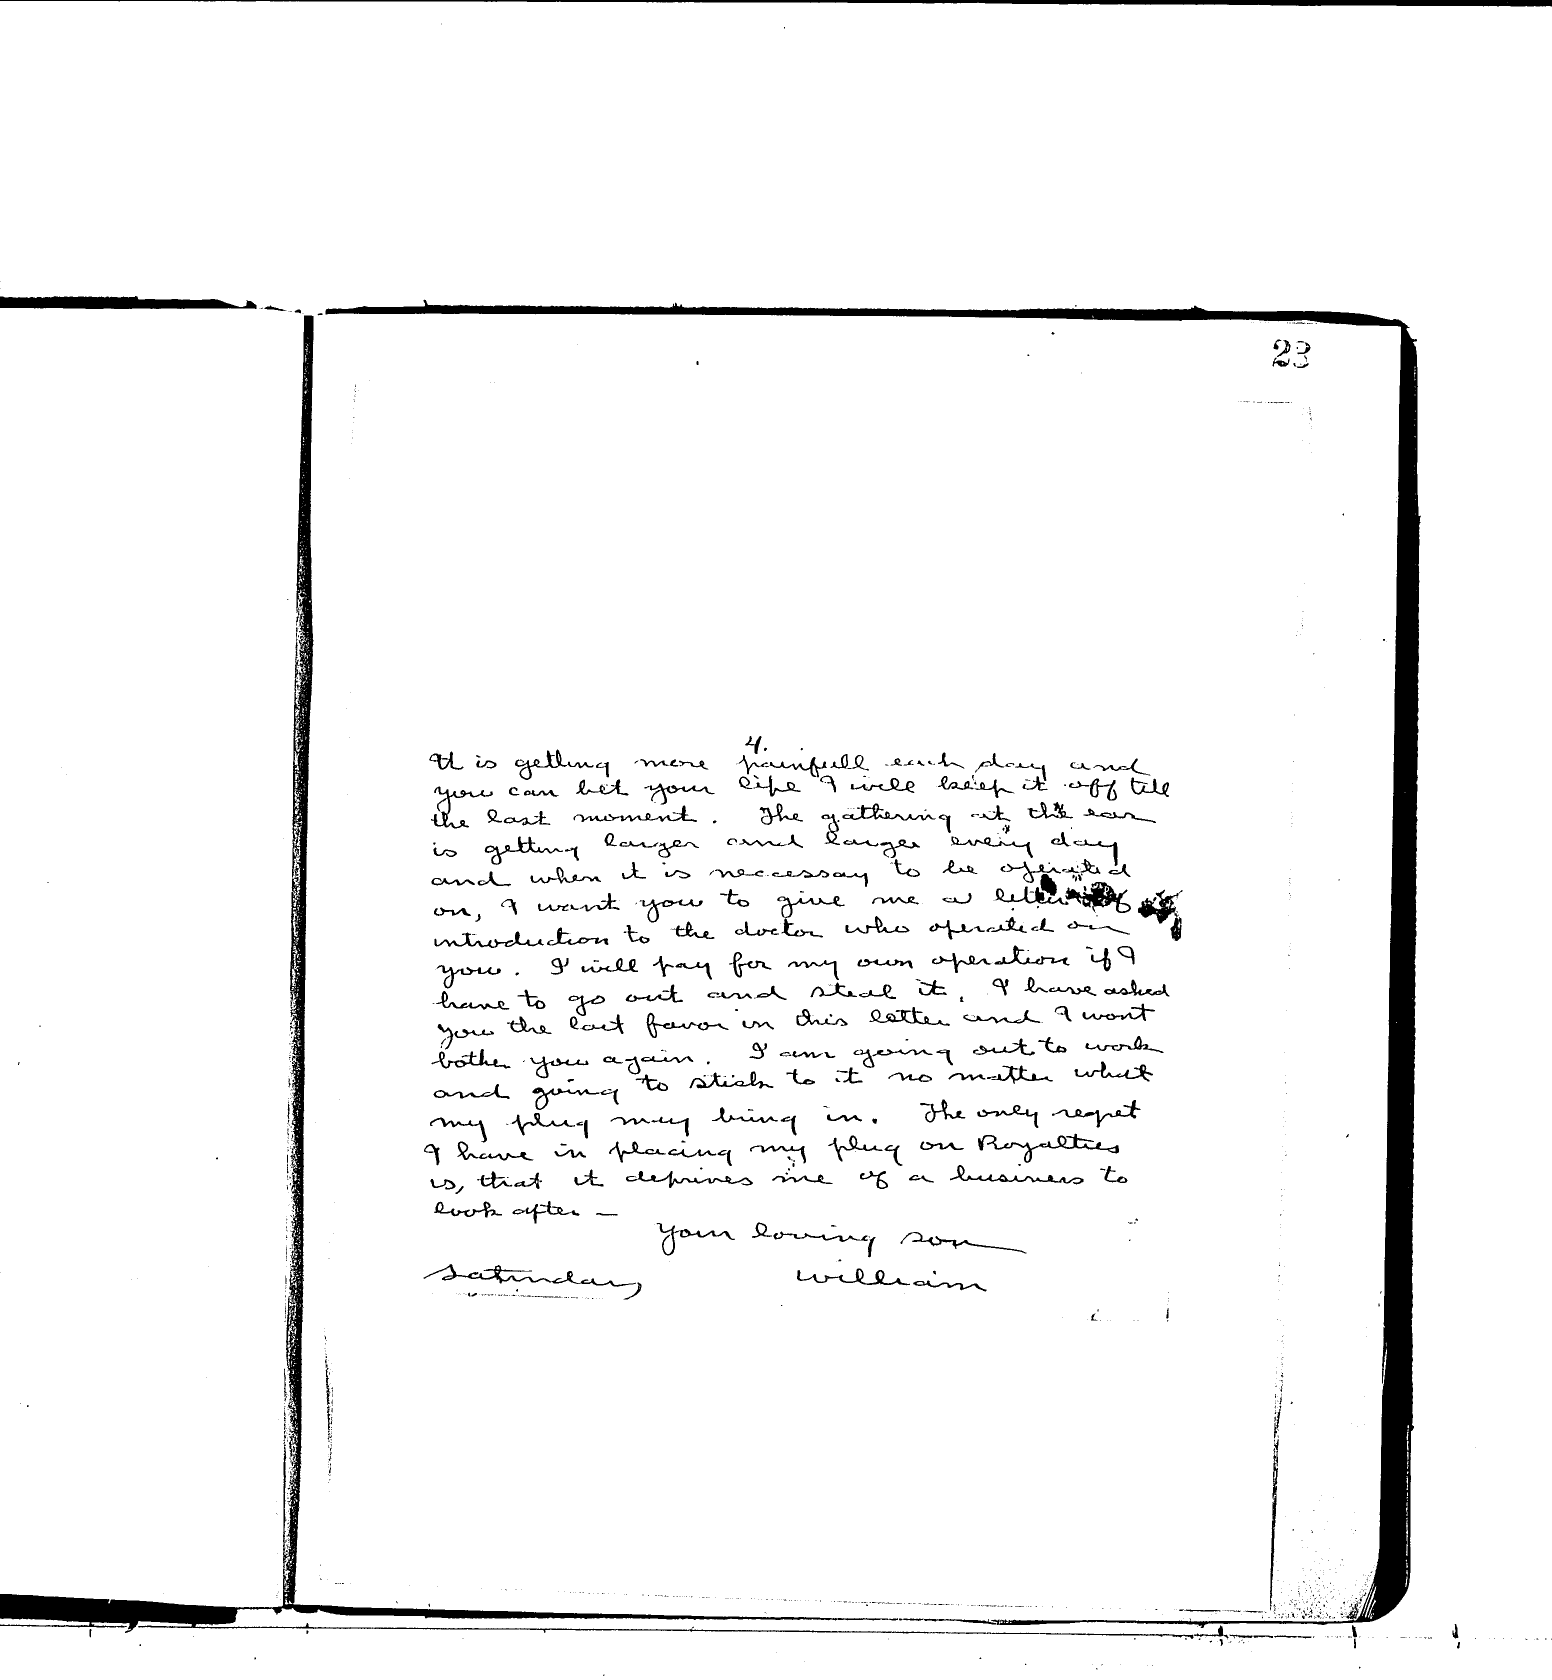 23
4.
It is getting more painfull each day and
you can bet your life I will keep it off till
the last moment. The gathering at the ear
is getting larger and larger every day
and when it is neccessay to be operated
on, I want you to give me a letter of
introduction to the doctor who operated on
you. I will pay for my own operation if I
have to go out and steal it. I have asked
you the last favor in this letter and I wont
bother you again. I am going out to work
and going to stick to it no matter what
my plug may bring in. The only regret
I have in placing my plug on Royalties
is, that it deprives me of a business to
look after —
Your loving son
Saturday William